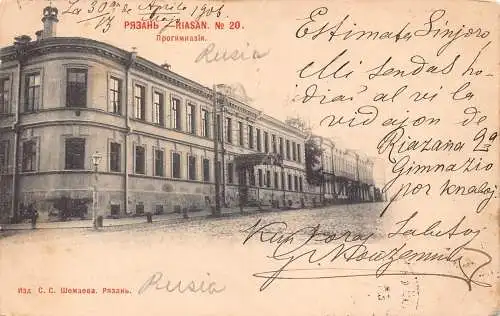 La 30an de Aprilo 1906
13 Majo
РЯЗАНЬ — RIASAN. № 20.
Прогимназія.
Rusia
Estimata Sinjoro
Mi sendas ho-
diaŭ al vi la
vidajon de
Riazana 2a
Gimnazio
por knaboj
Kun kora Saluto
Rusia
Изд. С. С. Шемаева. Рязань.